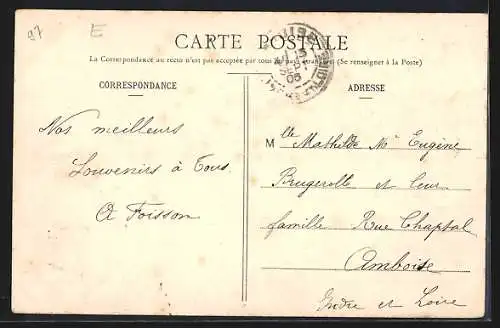 97
E
CARTE POSTALE
La Correspondance au recto n'est pas acceptée par tous (Se renseigner à la Poste)
CORRESPONDANCE
ADRESSE
Nos meilleurs
Souvenirs à Tous.
A Foisson
Mlle Mathilde Mr Eugène
Brugerolle et leur
famille Rue Chaptal
Amboise
Indre et Loire